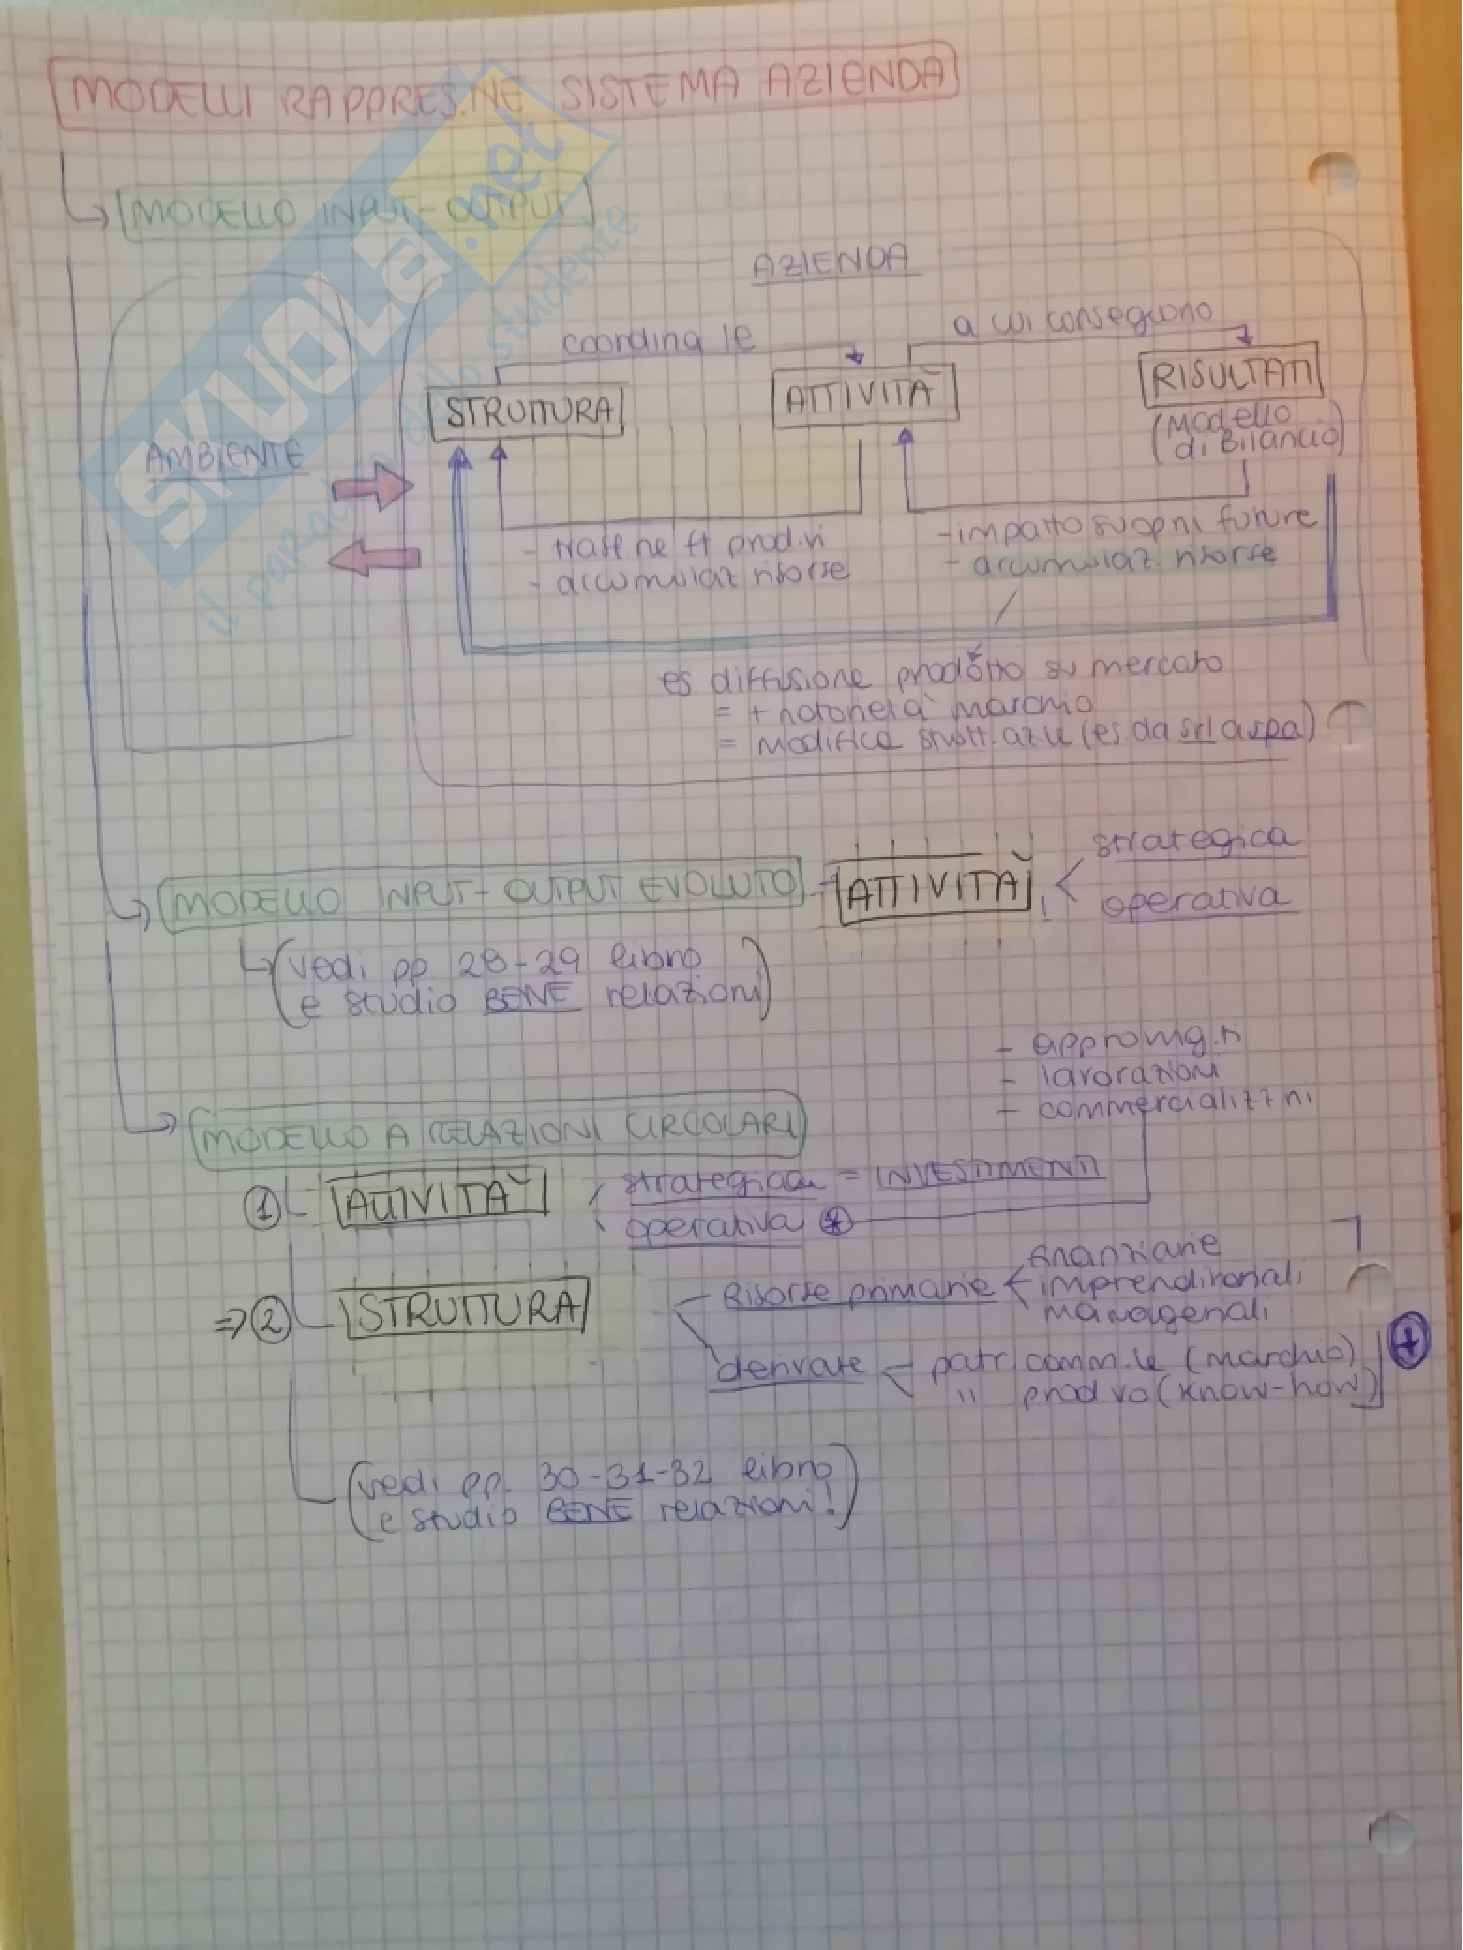 MODELLI RAPPRES.NE SISTEMA AZIENDA
MODELLO INPUT-OUTPUT
SKUOLA.net
AZIENDA
coordina le
a cui conseguono
STRUTTURA
ATTIVITÀ
RISULTATI
(Modello
di Bilancio)
AMBIENTE
- accumulaz risorse
- impatto su opni future
- accumulaz. risorse
es diffusione prodotto su mercato
= + notorietà marchio
= modifica strutt. az.le (es da srl a spa)
MODELLO INPUT-OUTPUT EVOLUTO - ATTIVITÀ
strategica
operativa
(vedi pp 28-29 libro
e studio BENE relazioni)
- approvvig.ri
- lavorazioni
- commercializz.ni
MODELLO A RELAZIONI CIRCOLARI
1 - ATTIVITÀ
strategica = INVESTIMENTI
operativa *
⇒ 2 - STRUTTURA
Risorse primarie
finanziarie
imprenditoriali
manageriali
derivate
patr comm.le (marchio)
" prod.vo (know-how)
+
(vedi pp. 30-31-32 libro
e studio BENE relazioni!)